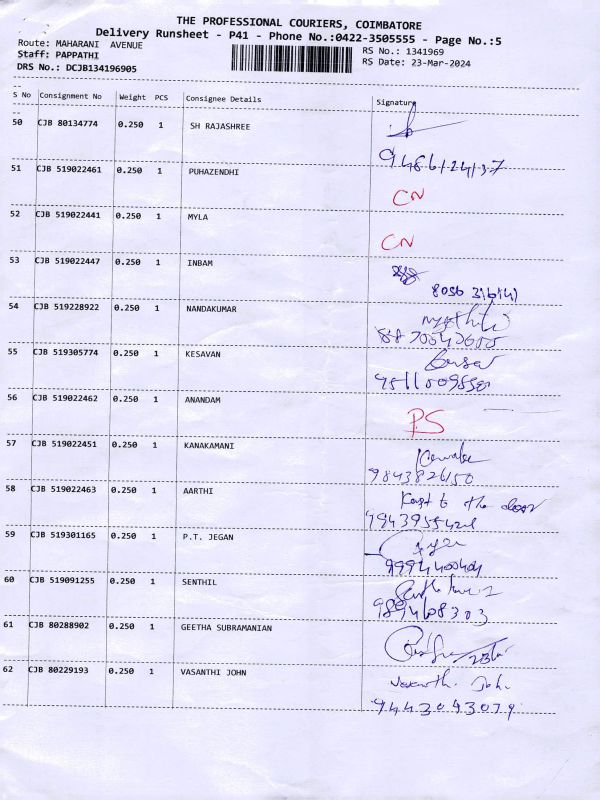 THE PROFESSIONAL COURIERS, COIMBATORE
Delivery Runsheet - P41 - Phone No.:0422-3505555 - Page No.:5
Route: MAHARANI AVENUE
RS No.: 1341969
Staff: PAPPATHI
RS Date: 23-Mar-2024
DRS No.: DCJB134196905
S No Consignment No Weight PCS Consignee Details Signature
50 CJB 80134774 0.250 1 SH RAJASHREE
9486124137
51 CJB 519022461 0.250 1 PUHAZENDHI CN
52 CJB 519022441 0.250 1 MYLA CN
53 CJB 519022447 0.250 1 INBAM
54 CJB 519228922 0.250 1 NANDAKUMAR
55 CJB 519305774 0.250 1 KESAVAN
56 CJB 519022462 0.250 1 ANANDAM PS
57 CJB 519022451 0.250 1 KANAKAMANI
9843826150
58 CJB 519022463 0.250 1 AARTHI Kept to the door
59 CJB 519301165 0.250 1 P.T. JEGAN
9994400404
60 CJB 519091255 0.250 1 SENTHIL
9894608303
61 CJB 80288902 0.250 1 GEETHA SUBRAMANIAN
62 CJB 80229193 0.250 1 VASANTHI JOHN Vasanthi John
9443043079